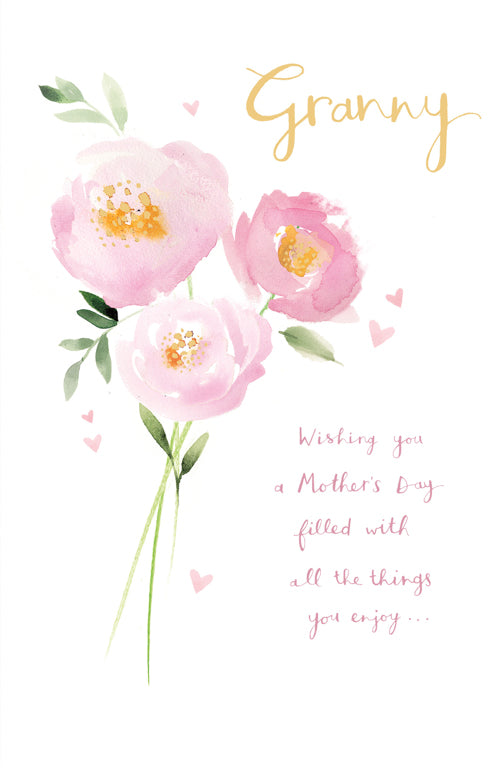 Granny
Wishing you
a Mother's Day
filled with
all the things
you enjoy...